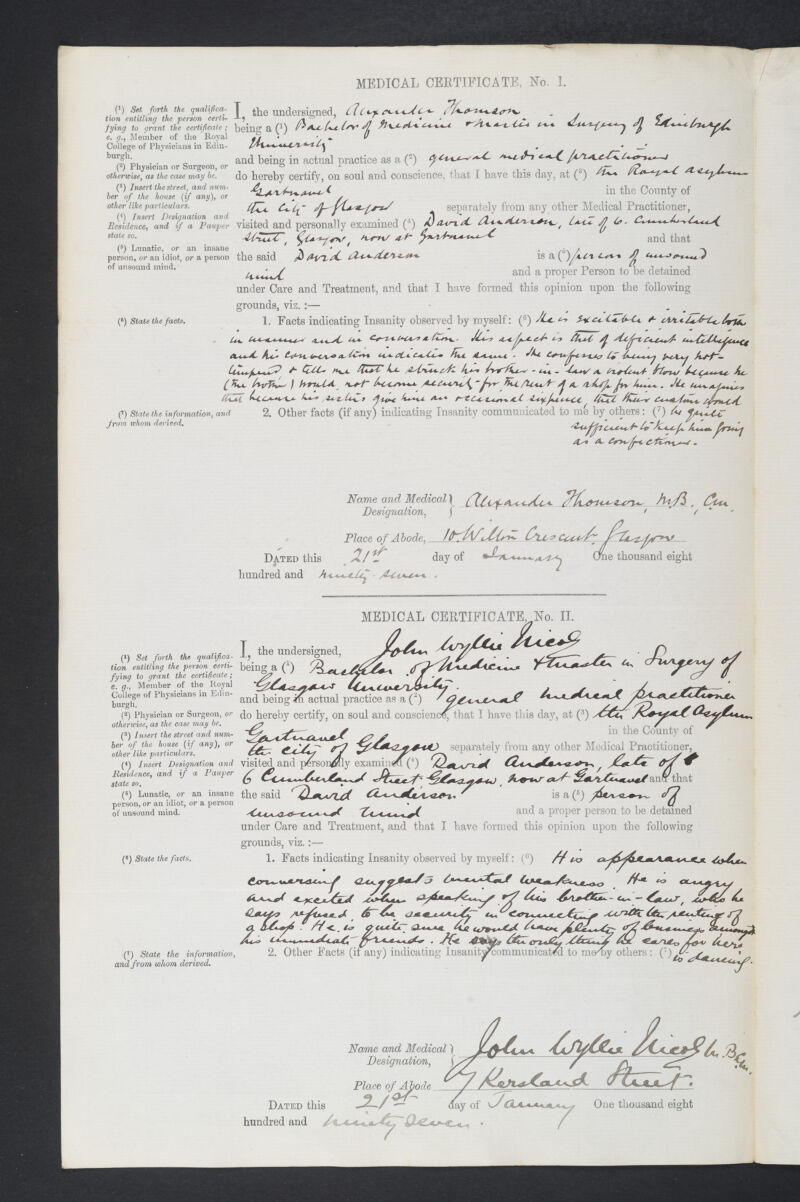 MEDICAL CERTIFICATE, No. I.
(¹) Set forth the qualifica-
tion entitling the person certi-
fying to grant the certificate;
e. g., Member of the Royal
College of Physicians in Edin-
burgh.
(²) Physician or Surgeon, or
otherwise, as the case may be.
(³) Insert the street, and num-
ber of the house (if any), or
other like particulars.
(⁴) Insert Designation and
Residence, and if a Pauper
state so.
(⁵) Lunatic, or an insane
person, or an idiot, or a person
of unsound mind.
I, the undersigned, Alexander Thomson
being a (¹) Bachelor of Medicine & Master in Surgery of Edinburgh
University
and being in actual practice as a (²) general medical practitioner
do hereby certify, on soul and conscience, that I have this day, at (³) the Royal Asylum
Gartnavel in the County of
the city of Glasgow separately from any other Medical Practitioner,
visited and personally examined (⁴) David Anderson, late of 6. Cumberland
Street, Glasgow, now at Gartnavel and that
the said David Anderson is a (⁵) person of unsound
mind and a proper Person to be detained
under Care and Treatment, and that I have formed this opinion upon the following
grounds, viz. :—
(⁶) State the facts.
1. Facts indicating Insanity observed by myself: (⁶) He is excitable & irritable both
in manner and in conversation. His aspect is that of deficient intelligence
and his conversation indicates the same. He confesses to being very hot-
tempered & tells me that he struck his brother-in-law a violent blow because he
(the brother) would not become security for the rent of a shop for him. He imagines
that because his sisters give him an occasional sixpence, that their custom would
(⁷) State the information, and
from whom derived.
2. Other facts (if any) indicating Insanity communicated to me by others: (⁷) be quite
sufficient to keep him going
as a confectioner.
Name and Medical
Designation, Alexander Thomson, M.B., C.M.
Place of Abode, 10. Wilton Crescent. Glasgow
DATED this 21st day of January One thousand eight
hundred and ninety-seven.
MEDICAL CERTIFICATE, No. II.
(¹) Set forth the qualifica-
tion entitling the person certi-
fying to grant the certificate;
e. g., Member of the Royal
College of Physicians in Edin-
burgh.
(²) Physician or Surgeon, or
otherwise, as the case may be.
(³) Insert the street and num-
ber of the house (if any), or
other like particulars.
(⁴) Insert Designation and
Residence, and if a Pauper
state so.
(⁵) Lunatic, or an insane
person, or an idiot, or a person
of unsound mind.
I, the undersigned, John Wyllie Nicol
being a (¹) Bachelor of Medicine & Master in Surgery of
Glasgow University.
and being in actual practice as a (²) general medical practitioner
do hereby certify, on soul and conscience, that I have this day, at (³) the Royal Asylum
Gartnavel in the County of
the city of Glasgow separately from any other Medical Practitioner,
visited and personally examined (⁴) David Anderson, late of
6 Cumberland Street Glasgow, now at Gartnavel and that
the said David Anderson is a (⁵) person of
unsound mind and a proper person to be detained
under Care and Treatment, and that I have formed this opinion upon the following
grounds, viz. :—
(⁶) State the facts.
1. Facts indicating Insanity observed by myself: (⁶) His appearance when
conversing suggests mental weakness. He is angry
and excited when speaking of his brother-in-law, who he
says refused to be security in connecting with the renting of
a shop. He is quite sure he would have plenty of business amongst
his immediate friends. He says the only thing he cares for here
(⁷) State the information,
and from whom derived.
2. Other Facts (if any) indicating Insanity communicated to me by others: (⁷) is dancing.
Name and Medical
Designation, John Wyllie Nicol M.B. C.M.
Place of Abode 7 Kersland Street.
DATED this 21st day of January One thousand eight
hundred and ninety seven.